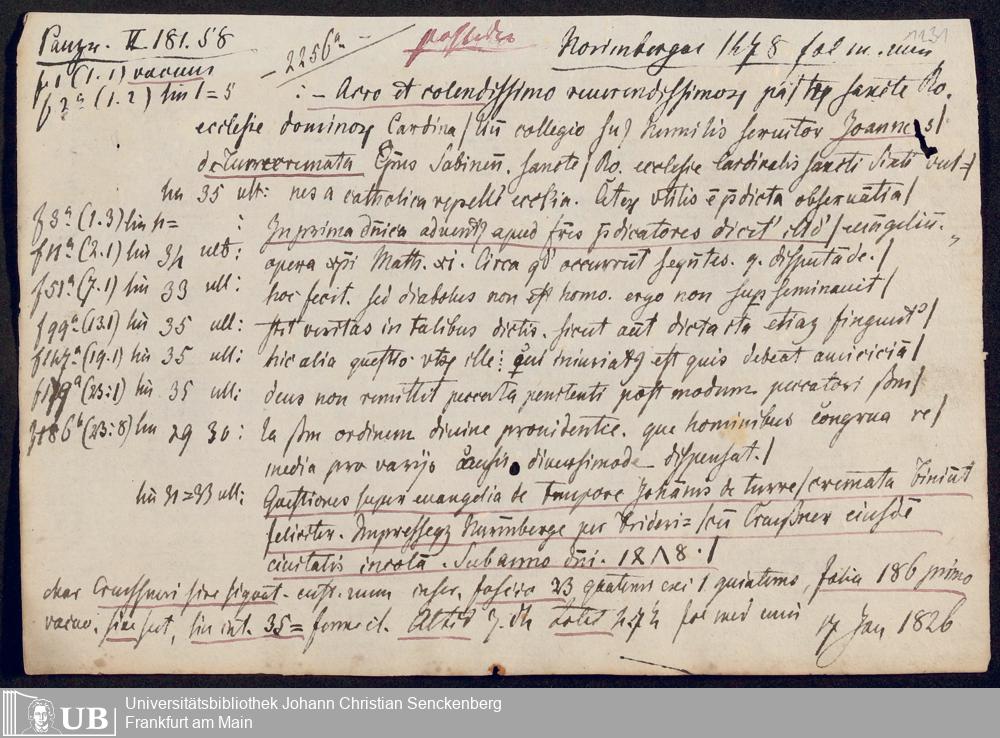 Panzr. II 181. 58 - 2256a - possedeo Norimbergae 1478 fol m. min 1231
f 1 (1.1) vacuum
f 2a (1.2) lin 1=5 : - Acro et colendissimo reuerendissimoꝝ patrꝫ sancte Ro.
ecclesie dominoꝝ Cardina/liū collegio su) humilis seruitor Joannes/
de Turrecremata Ep̄us Sabineñ. sancte/ Ro. ecclesie Cardinalis sancti Sixti
lin 35 ult: nes a catholica repelle ecclia. Aꝉeꝝ vtilis ē p̄dicta obseruātia/
f 3a (1.3) lin : In prima dn̄ica aduentꝰ apud fr̄es p̄dicatores dicit' illd'/ euāgeliū.
f 11a (2.1) lin 34 ult: opera xp̄i Math. xi. Circa qd' occurrūt seqn̄tes. q. disputāde./
f 51a (7.1) lin 33 ult: hoc fecit. sed diabolus non est homo. ergo non sup seminauit/
f 99a (13.1) lin 35 ult: sit veritas in talibus dictis. sicut aūt dicta ita etiaꝫ finguntᵓ/
f 147a (19.1) lin 35 ult: hic alia questio vtꝝ ille: qui iniuriatꝰ est quis debeat amiciciā/
f 179a (23:1) lin 35 ult: deus non remittit peccata penitenti post modum peccatori ẜm/
f 186b (23:8) lin 29 30: la ẜm ordinem diuine prouidentie. que hominibus ꝯgrua re/
media pro varijs diuersimode dispensat./
lin 31=33 ult: Questiones super euangelia de tempore Johānis de turre/cremata finiūt
feliciter. Impresseqꝫ Nurm̄berge per Frideri=/cū Creußner eiusdē
ciuitatis incolā. Sub anno dn̄i. 1478./
char Creussneri sine signat. custr. num 23 quaterni 1 quinternus, folia 186 primo
vacuo, sine sut, lin int. 35= forme cl. 474 17 Jan 1826
Universitätsbibliothek Johann Christian Senckenberg
Frankfurt am Main
UB